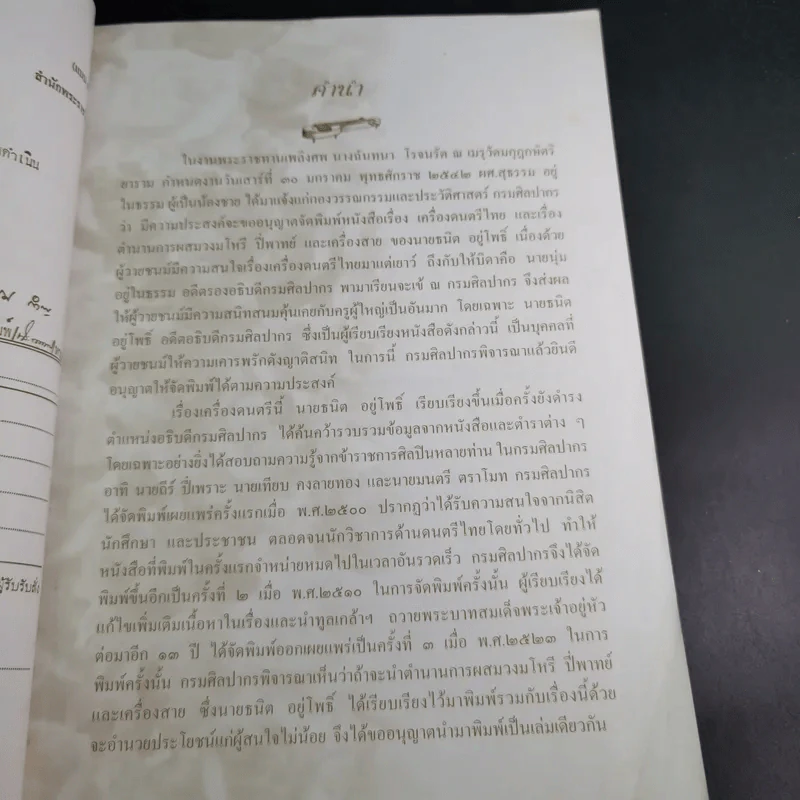 สำนักพระรา
คำนำ
ในงานพระราชทานเพลิงศพ นางฉันทนา โรจนรัต ณ เมรุวัดมกุฎกษัตริ
ยาราม กำหนดงานวันเสาร์ที่ ๓๐ มกราคม พุทธศักราช ๒๕๔๒ ผศ.สุธรรม อยู่
ในธรรม ผู้เป็นน้องชาย ได้มาแจ้งแก่กองวรรณกรรมและประวัติศาสตร์ กรมศิลปากร
ว่า มีความประสงค์จะขออนุญาตจัดพิมพ์หนังสือเรื่อง เครื่องดนตรีไทย และเรื่อง
ตำนานการผสมวงมโหรี ปี่พาทย์ และเครื่องสาย ของนายธนิต อยู่โพธิ์ เนื่องด้วย
ผู้วายชนม์มีความสนใจเรื่องเครื่องดนตรีไทยมาแต่เยาว์ ถึงกับให้บิดาคือ นายนุ่ม
อยู่ในธรรม อดีตรองอธิบดีกรมศิลปากร พามาเรียนจะเข้ ณ กรมศิลปากร จึงส่งผล
ให้ผู้วายชนม์มีความสนิทสนมคุ้นเคยกับครูผู้ใหญ่เป็นอันมาก โดยเฉพาะ นายธนิต
อยู่โพธิ์ อดีตอธิบดีกรมศิลปากร ซึ่งเป็นผู้เรียบเรียงหนังสือดังกล่าวนี้ เป็นบุคคลที่
ผู้วายชนม์ให้ความเคารพรักดังญาติสนิท ในการนี้ กรมศิลปากรพิจารณาแล้วยินดี
อนุญาตให้จัดพิมพ์ได้ตามความประสงค์
เรื่องเครื่องดนตรีนี้ นายธนิต อยู่โพธิ์ เรียบเรียงขึ้นเมื่อครั้งยังดำรง
ตำแหน่งอธิบดีกรมศิลปากร ได้ค้นคว้ารวบรวมข้อมูลจากหนังสือและตำราต่าง ๆ
โดยเฉพาะอย่างยิ่งได้สอบถามความรู้จากข้าราชการศิลปินหลายท่าน ในกรมศิลปากร
อาทิ นายถีร์ ปี่เพราะ นายเทียบ คงลายทอง และนายมนตรี ตราโมท กรมศิลปากร
ได้จัดพิมพ์เผยแพร่ครั้งแรกเมื่อ พ.ศ.๒๕๐๐ ปรากฏว่าได้รับความสนใจจากนิสิต
นักศึกษา และประชาชน ตลอดจนนักวิชาการด้านดนตรีไทยโดยทั่วไป ทำให้
หนังสือที่พิมพ์ในครั้งแรกจำหน่ายหมดไปในเวลาอันรวดเร็ว กรมศิลปากรจึงได้จัด
พิมพ์ขึ้นอีกเป็นครั้งที่ ๒ เมื่อ พ.ศ.๒๕๑๐ ในการจัดพิมพ์ครั้งนั้น ผู้เรียบเรียงได้
แก้ไขเพิ่มเติมเนื้อหาในเรื่องและนำทูลเกล้าฯ ถวายพระบาทสมเด็จพระเจ้าอยู่หัว
ต่อมาอีก ๑๓ ปี ได้จัดพิมพ์ออกเผยแพร่เป็นครั้งที่ ๓ เมื่อ พ.ศ.๒๕๒๓ ในการ
พิมพ์ครั้งนั้น กรมศิลปากรพิจารณาเห็นว่าถ้าจะนำตำนานการผสมวงมโหรี ปี่พาทย์
และเครื่องสาย ซึ่งนายธนิต อยู่โพธิ์ ได้เรียบเรียงไว้มาพิมพ์รวมกับเรื่องนี้ด้วย
จะอำนวยประโยชน์แก่ผู้สนใจไม่น้อย จึงได้ขออนุญาตนำมาพิมพ์เป็นเล่มเดียวกัน